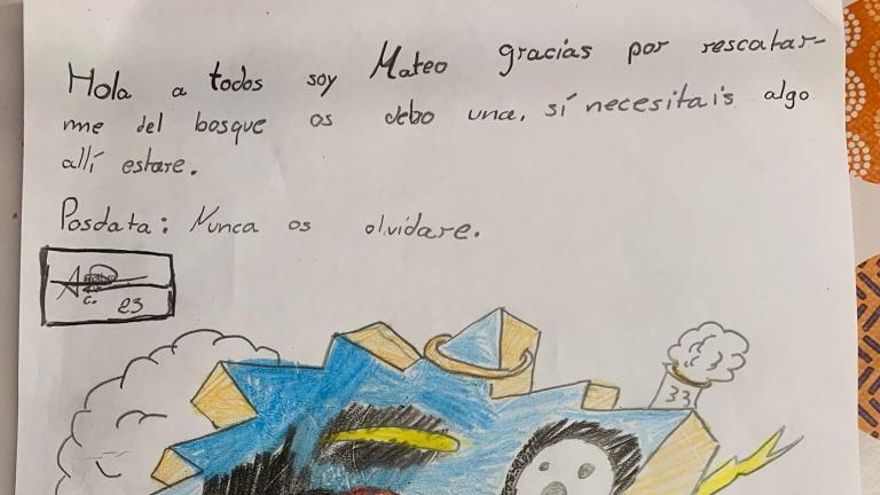 Hola a todos soy Mateo gracias por rescatar-
me del bosque os debo una, sí necesitais algo
allí estare.
Posdata: Nunca os olvidare.
C. 23
33